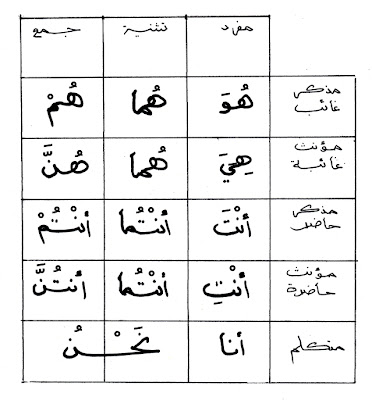 مفرد تثنية جمع
مذكر غائب هُوَ هُما هُمْ
مؤنث غائبة هِيَ هُما هُنَّ
مذكر حاضر أنْتَ أنْتُما أنْتُمْ
مؤنث حاضرة أنْتِ أنْتُما أنتُنَّ
متكلم أنا نَحْنُ